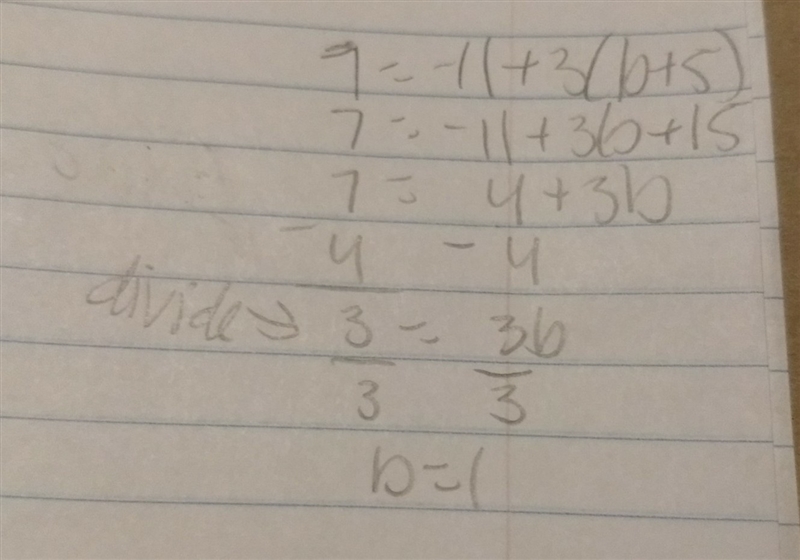 7 = -11+3(b+5)
7 = -11+3b+15
7 = 4+3b
-4 -4
divide⇒ 3 = 3b
3 3
b=1